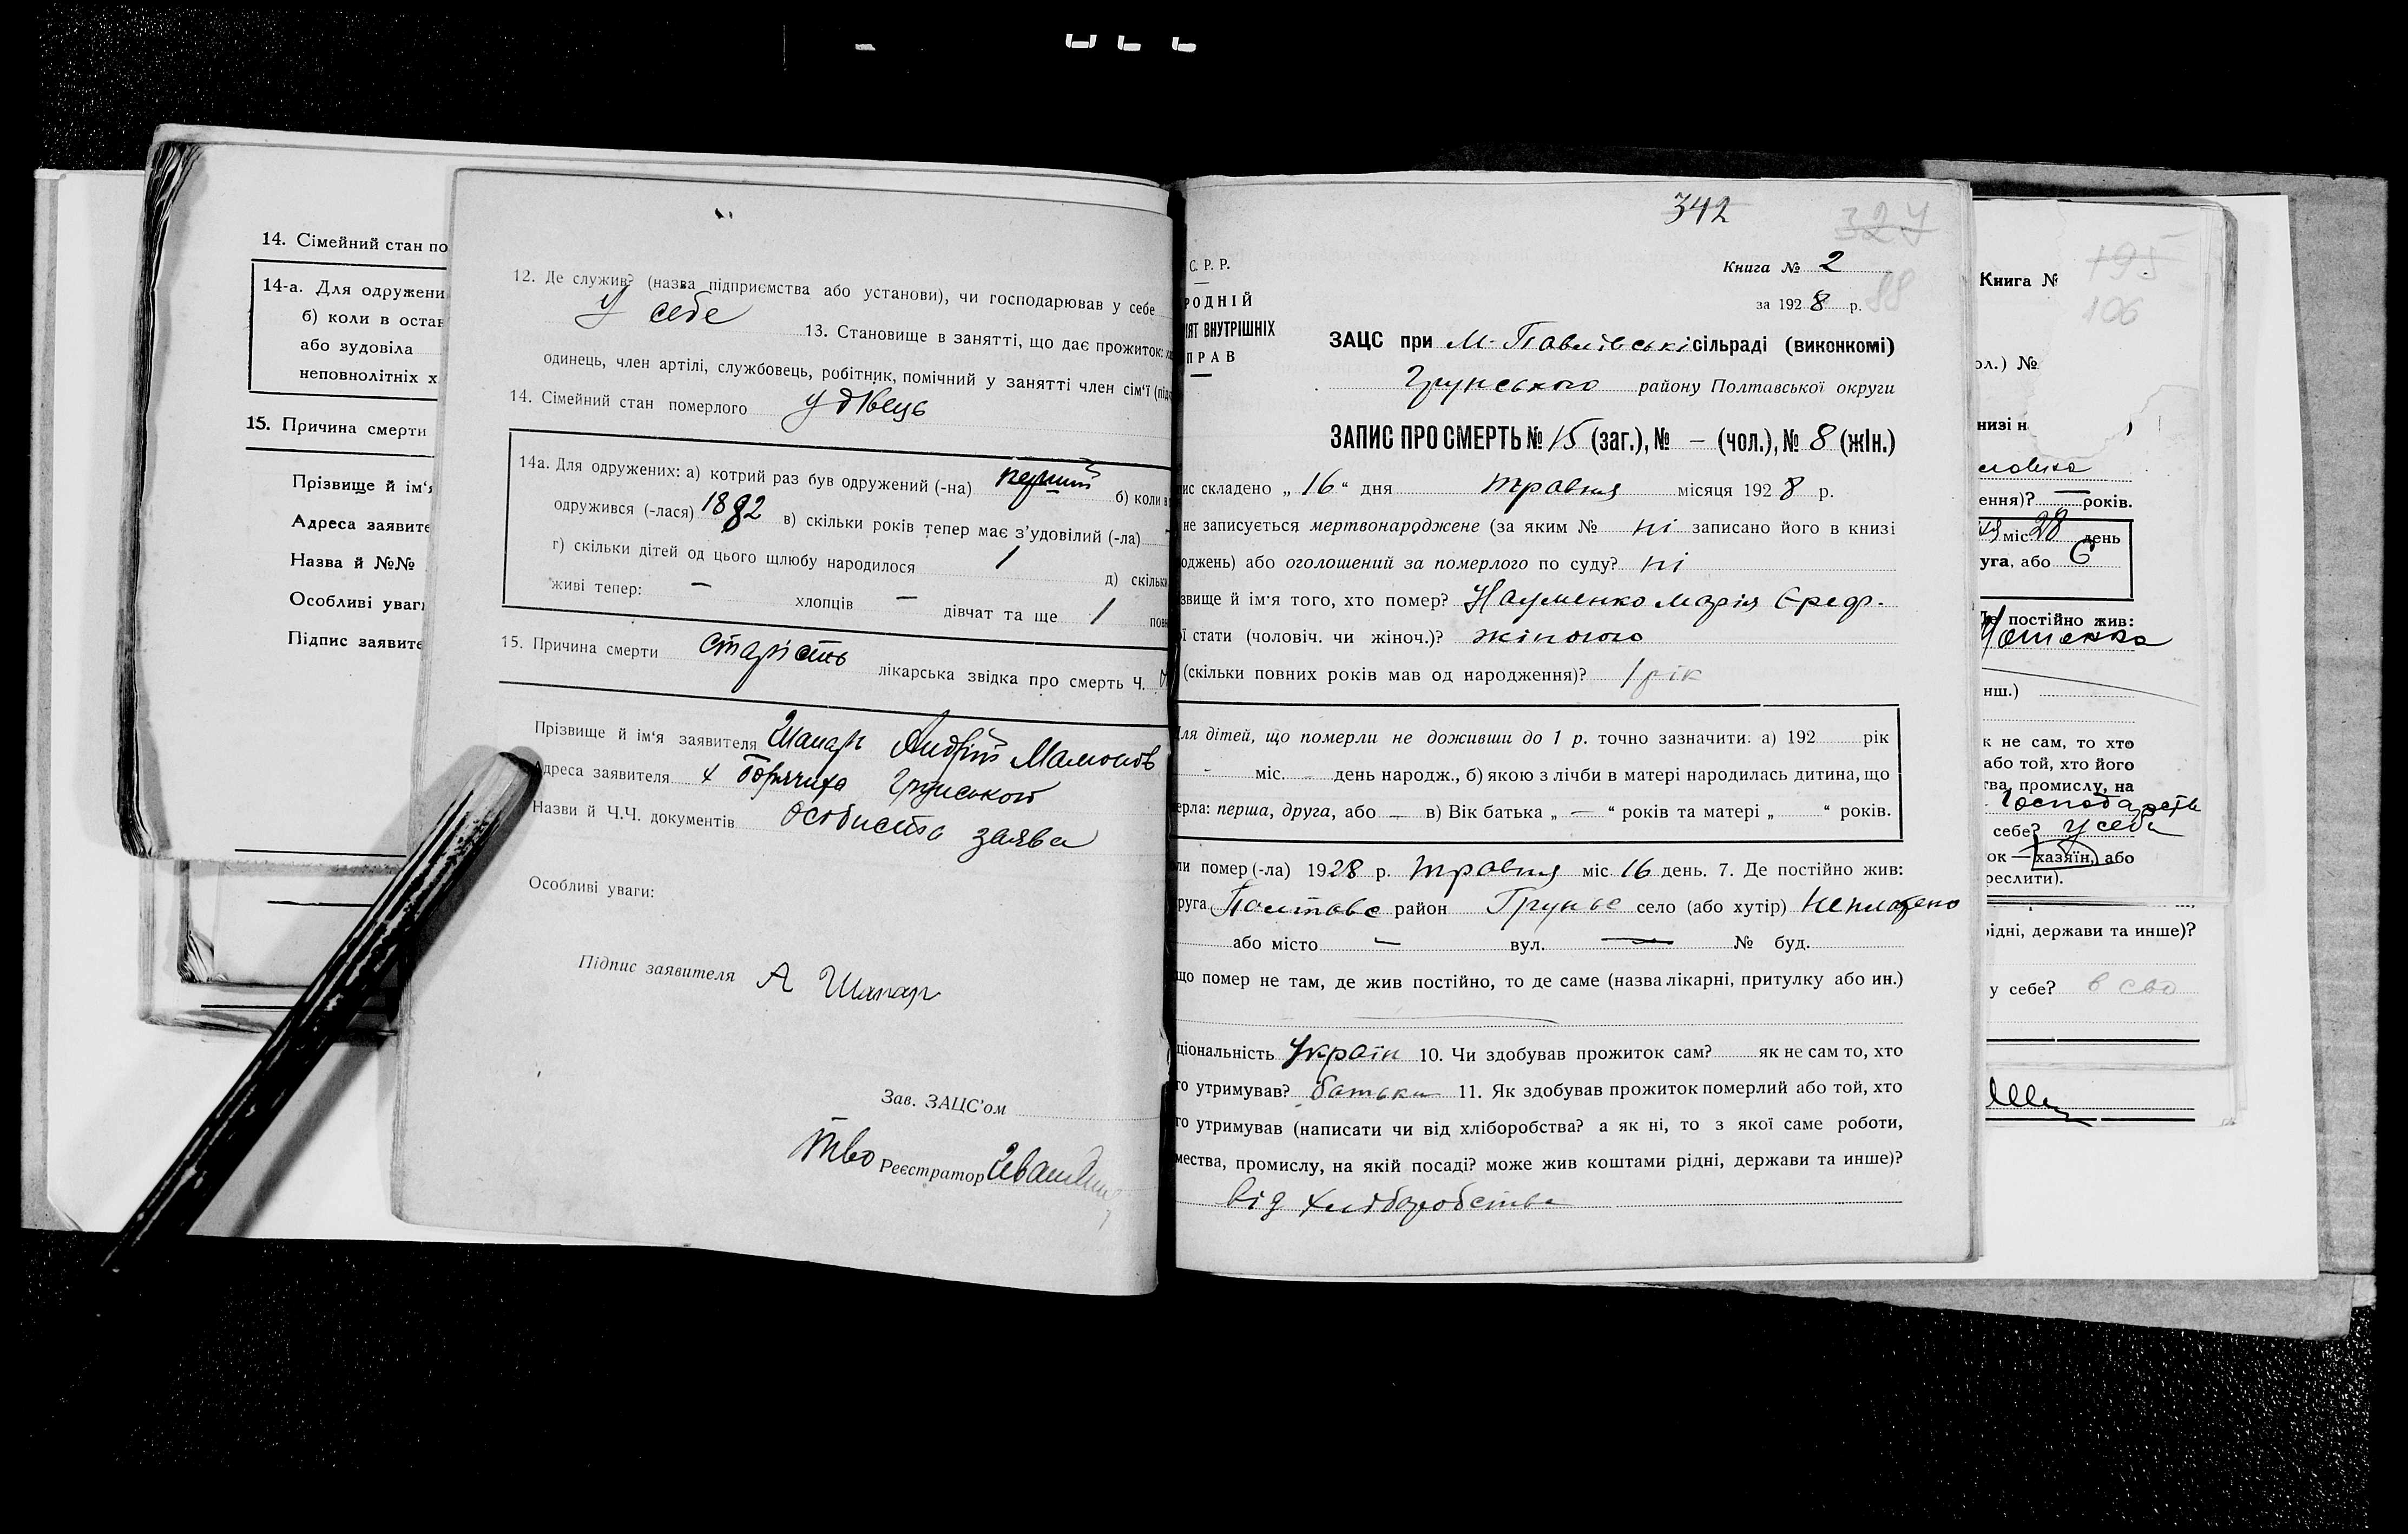 14. Сімейний стан по
14-а. Для одружени
б) коли в остан
або зудовіла
неповнолітніх х
15. Причина смерти
Прізвище й ім'я
Адреса заявите
Назва й №№
Особливі уваги
Підпис заявите
12. Де служив? (назва підприємства або установи), чи господарював у себе
У себе 13. Становище в занятті, що дає прожиток: ха
одинець, член артілі, службовець, робітник, помічний у занятті член сім'ї (підк
14. Сімейний стан померлого удівець
14а. Для одружених: а) котрий раз був одружений (-на) перший б) коли в
одружився (-лася) 1882 в) скільки років тепер має з'удовілий (-ла)
г) скільки дітей од цього щлюбу народилося 1 д) скільки
живі тепер: — хлопців — дівчат та ще 1 повн
15. Причина смерти старість лікарська звідка про смерть Ч.
Прізвище й ім'я заявителя Шапарь Андрій Мамонов
Адреса заявителя х Борячиха Грунського
Назви й Ч.Ч. документів особиста заява
Особливі уваги:
Підпис заявителя А Шапар
Зав. ЗАЦС'ом
тво Реєстратор
342
327
88
С. Р. Р.
РОДНІЙ
ІЯТ ВНУТРІШНІХ
ПРАВ
Книга № 2
за 1928 р.
ЗАЦС при М-Павлівські сільраді (виконкомі)
Грунського району Полтавської округи
ЗАПИС ПРО СМЕРТЬ № 15 (заг.), № — (чол.), № 8 (жін.)
ис складено „ 16 “ дня травня місяця 1928 р.
не записується мертвонароджене (за яким № ні записано його в книзі
оджень) або оголошений за померлого по суду? ні
звище й ім'я того, хто помер? Науменко Марія Єреф.
ої стати (чоловіч. чи жіноч.)? жіночого
(скільки повних років мав од народження)? 1 рік
Для дітей, що померли не доживши до 1 р. точно зазначити: а) 192 рік
- міс. - день народж., б) якою з лічби в матері народилась дитина, що
ерла: перша, друга, або — в) Вік батька „ — “ років та матері „ “ років.
ли помер (-ла) 1928 р. травня міс. 16 день. 7. Де постійно жив:
руга Полтавс район Груньс село (або хутір)
або місто — вул. — № буд.
що помер не там, де жив постійно, то де саме (назва лікарні, притулку або ин.)
ціональність Україн 10. Чи здобував прожиток сам? як не сам то, хто
го утримував? батьки 11. Як здобував прожиток померлий або той, хто
го утримував (написати чи від хліборобства? а як ні, то з якої саме роботи,
мества, промислу, на якій посаді? може жив коштами рідні, держави та инше)?
від хліборобства
195
106
Книга №
ол.) №
низі н
ення)? — років.
міс. 28 день
уга, або 6
Де постійно жив:
нш.)
к не сам, то хто
або той, хто його
тва, промислу, на
господарств
себе? у себе
ок — хазяїн, або
реслити).
рідні, держави та инше)?
у себе? в сво